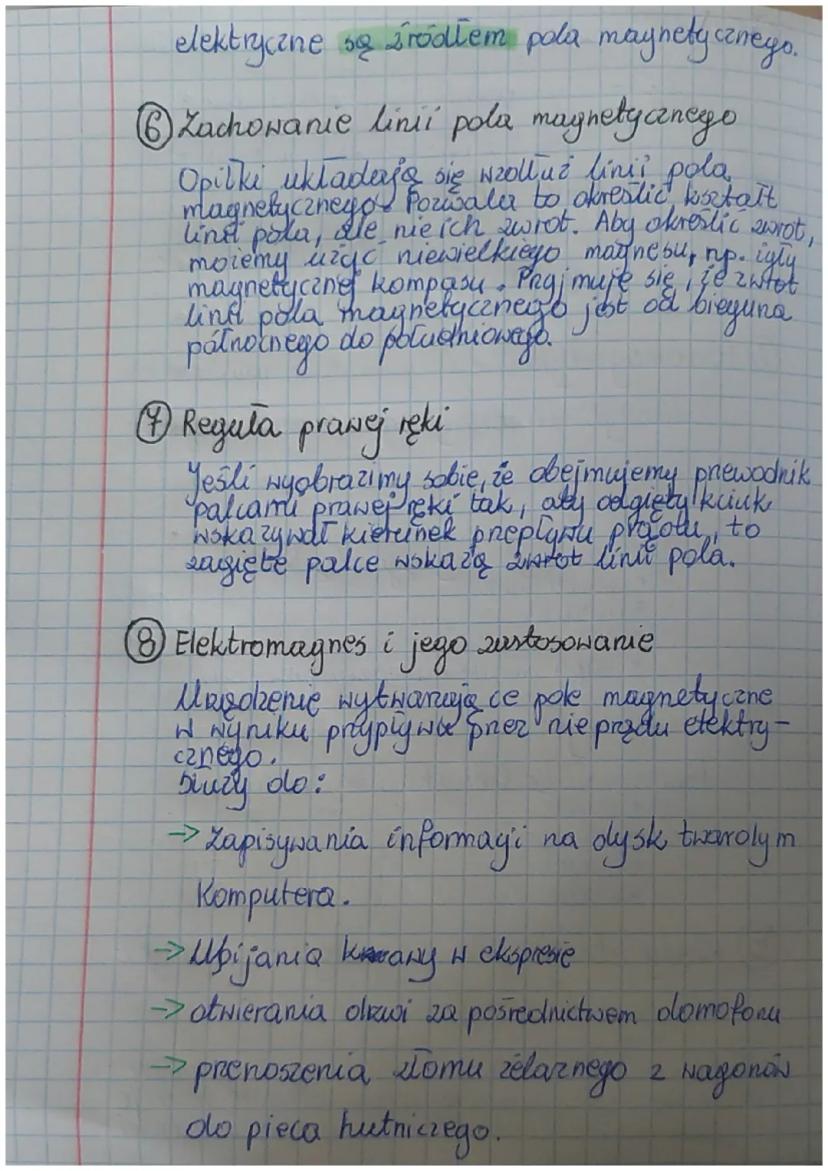 elektryczne są źródłem pola magnetycznego.
⑥ Zachowanie linii pola magnetycznego
Opiłki układają się wzdłuż linii pola
magnetycznego. Pozwala to określić kształt
linii pola, ale nie ich zwrot. Aby określić zwrot,
możemy użyć niewielkiego magnesu, np. igły
magnetycznej kompasu. Przyjmuje się, że zwrot
linii pola magnetycznego jest od bieguna
północnego do południowego.
⑦ Reguła prawej ręki
Jeśli wyobrazimy sobie, że obejmujemy przewodnik
palcami prawej ręki tak, aby odgięty kciuk
wskazywał kierunek przepływu prądu, to
zagięte palce wskażą zwrot linii pola.
⑧ Elektromagnes i jego zastosowanie
Urządzenie wytwarzające pole magnetyczne
w wyniku przypływu przez nie prądu elektry-
cznego.
Służy do:
→ Zapisywania informacji na dysk twardym
Komputera.
→ Ubijania kawy w ekspresie
→ otwierania drzwi za pośrednictwem domofonu
→ przenoszenia złomu żelaznego z wagonów
do pieca hutniczego.